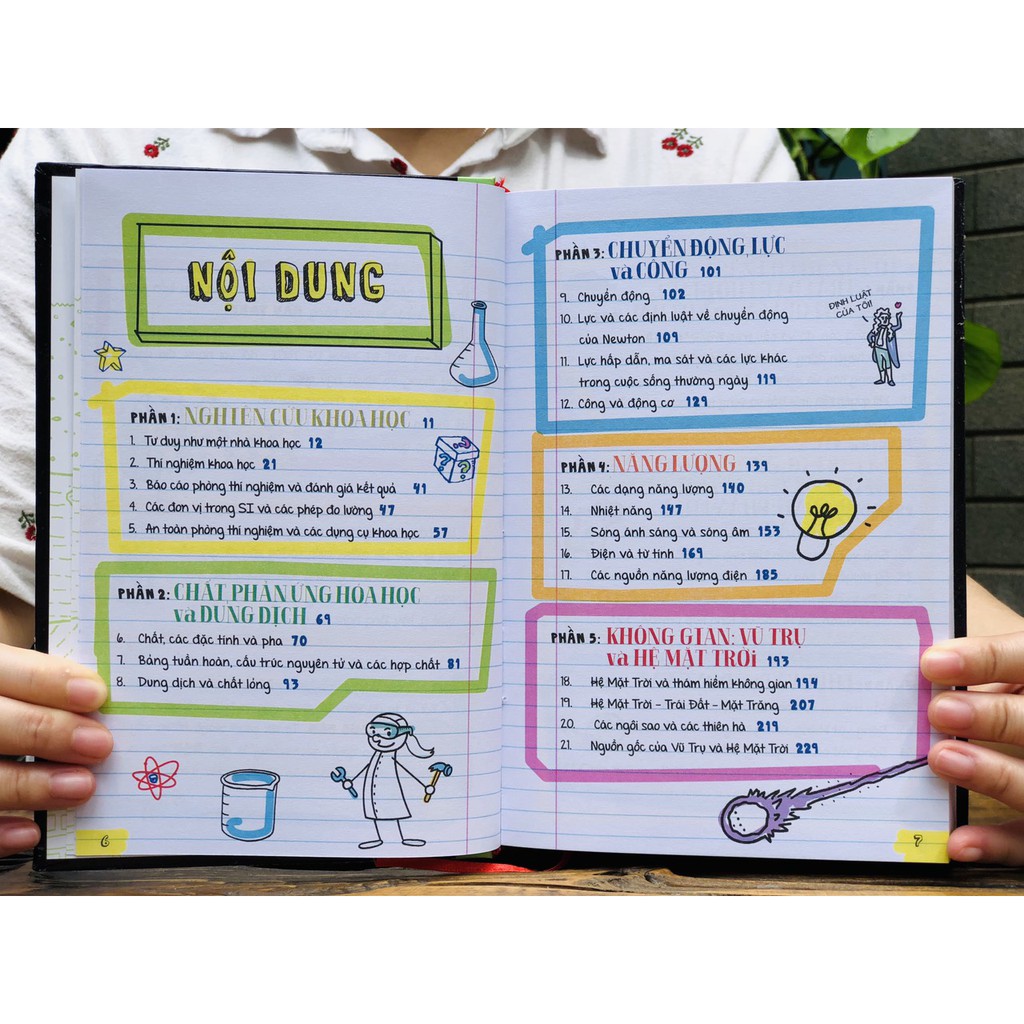 NỘI DUNG
PHẦN 1: NGHIÊN CỨU KHOA HỌC 11
1. Tư duy như một nhà khoa học 12
2. Thí nghiệm khoa học 21
3. Báo cáo phòng thí nghiệm và đánh giá kết quả 41
4. Các đơn vị trong SI và các phép đo lường 47
5. An toàn phòng thí nghiệm và các dụng cụ khoa học 57
PHẦN 2: CHẤT, PHẢN ỨNG HÓA HỌC
và DUNG DỊCH 69
6. Chất, các đặc tính và pha 70
7. Bảng tuần hoàn, cấu trúc nguyên tử và các hợp chất 81
8. Dung dịch và chất lỏng 93
6
PHẦN 3: CHUYỂN ĐỘNG, LỰC
và CÔNG 101
9. Chuyển động 102
10. Lực và các định luật về chuyển động
của Newton 109
11. Lực hấp dẫn, ma sát và các lực khác
trong cuộc sống thường ngày 119
12. Công và động cơ 129
ĐỊNH LUẬT
CỦA TÔI!
PHẦN 4: NĂNG LƯỢNG 139
13. Các dạng năng lượng 140
14. Nhiệt năng 147
15. Sóng ánh sáng và sóng âm 153
16. Điện và từ tính 169
17. Các nguồn năng lượng điện 185
PHẦN 5: KHÔNG GIAN: VŨ TRỤ
và HỆ MẶT TRỜI 193
18. Hệ Mặt Trời và thám hiểm không gian 194
19. Hệ Mặt Trời - Trái Đất - Mặt Trăng 207
20. Các ngôi sao và các thiên hà 219
21. Nguồn gốc của Vũ Trụ và Hệ Mặt Trời 229
7